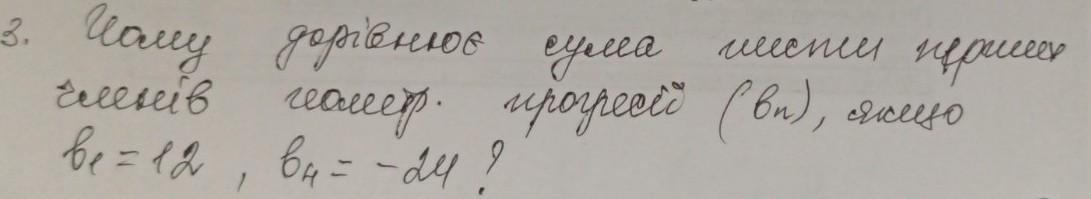 3. Чому дорівнює сума шести перших
членів геометр. прогресії (bn), якщо
b1 = 12 , b4 = -24 ?